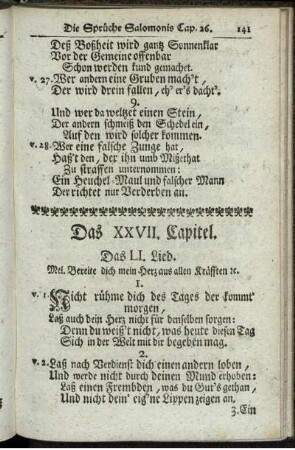 Die Sprüche Salomonis Cap. 26. 141
Deß Boßheit wird gantz Sonnenklar
Vor der Gemeine offenbar
Schon werden kund gemachet.
v. 27. Wer andern eine Gruben mach't,
Der wird drein fallen, eh' er's dacht'.
9.
Und wer da weltzet einen Stein,
Der andern schmeiß den Schedel ein,
Auf den wird solcher kommen.
v. 28. Wer eine falsche Zunge hat,
Haß't den, der ihn umb Mißethat
Zu straffen unternommen:
Ein Heuchel-Maul und falscher Mann
Der richtet nur Verderben an.
Das XXVII. Capitel.
Das LI. Lied.
Mel. Bereite dich mein Herz aus allen Kräfften ꝛc.
1.
v. 1. Nicht rühme dich des Tages der kommt
morgen,
Laß auch dein Herz nicht für denselben sorgen:
Denn du weiß't nicht, was heute diesen Tag
Sich in der Welt mit dir begeben mag.
2.
v. 2. Laß nach Verdienst dich einen andern loben,
Und werde nicht durch deinen Mund erhoben:
Laß einen Frembden, was du Gut's gethan,
Und nicht dein' eig'ne Lippen zeigen an.
3. Ein